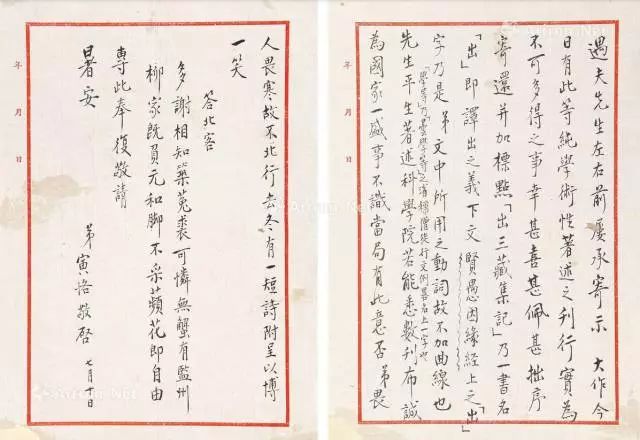 遇夫先生左右前屡承寄示 大作今
日有此等純學術性著述之刊行實為
不可多得之事幸甚喜甚佩甚拙序
寄還并加標點「出三藏集記」乃一書名
「出」即譯出之義下文賢愚因緣經上之「出」
字乃是弟文中所用之動詞故不加曲線也
「學等」乃曇學等之省稱僧徒行文例畧名上一字也
先生平生著述科學院若能悉數刊布誠
為國家一盛事不識當局有此意否弟畏
年 月 日
人畏寒故不北行去冬有一短詩附呈以博
一笑
答北客
多謝相知築菟裘可憐無蟹有監州
柳家既負元和腳不采蘋花即自由
專此奉復敬請
暑安
弟寅恪敬啓 七月 日
年 月 日